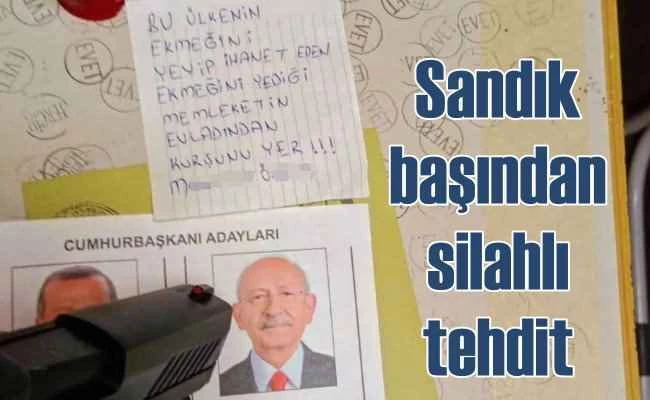 BU ÜLKENİN
EKMEĞİNİ
YEYİP İHANET EDEN
EKMEĞİNİ YEDİĞİ
MEMLEKETİN
EVLADINDAN
KURŞUNU YER!!!
CUMHURBAŞKANI ADAYLARI
Sandık
başından
silahlı
tehdit
EVET
EVET
EVET
EVET
EVET